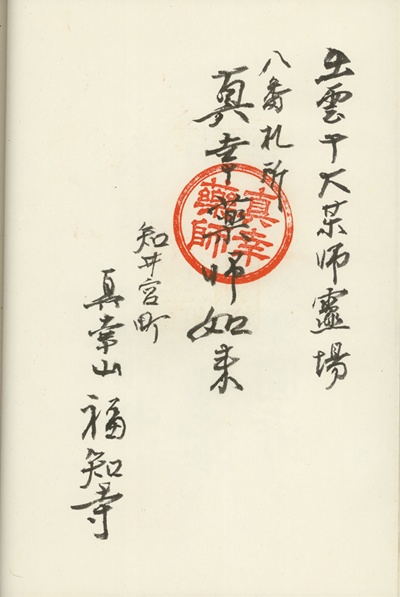 出雲十大薬師靈場
八番札所
真幸薬師如来
真幸
藥師
知井宮町
真幸山 福知寺